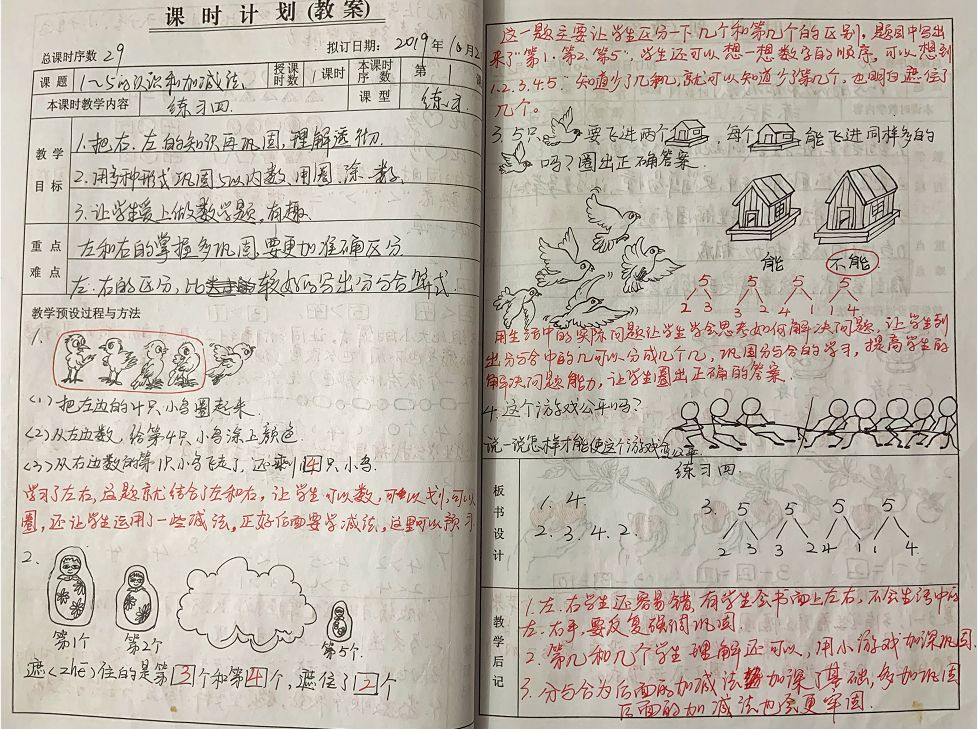 课 时 计 划 (教 案)
总课时序数 29
拟订日期： 2019 年 10月2
课 题
1～5的认识和加减法
授课时数
1课时
本课时序 数
第 1
本课时教学内容
练习四
课 型
练习
教 学 目 标
1.把右、左的知识再巩固,理解透彻.
2.用多种形式巩固5以内数,用圈、涂、数.
3.让学生爱上做数学题,有趣.
重 点
左和右的掌握多巩固,要更加准确区分
难 点
左、右的区分,比较好的写出分与合算式.
教学预设过程与方法
1.
<1>把左边的4只小鸟圈起来.
<2>从左边数,给第4只小鸟涂上颜色.
<3>从右边数的第1只小鸟飞走了,还剩4只小鸟.
学习了左右,这题就结合了左和右,让学生可以数,可以划,可以
圈,还让学生运用了一些减法,正好后面要学减法,这里可以预习
2.
第1个
第2个
第5个.
遮<zhē>住的是第3个和第4个,遮住了2个
这一题主要让学生区分一下几个和第几个的区别,题目中写出
来了“第1、第2、第5”,学生还可以想一想数字的顺序,可以想到
1.2.3.4.5.知道少了几和几,就可以知道少了第几个,也明白遮住了
几个。
3. 5只 要飞进两个 ,每个 能飞进同样多的
吗?圈出正确答案.
能
不能
5 5 5 5
2 3 3 2 4 1 1 4
用生活中的实际问题让学生学会思考如何解决问题,让学生列
出分与合中的几可以分成几个几,巩固分与合的学习,提高学生的
解决问题能力,让学生圈出正确的答案.
4.这个游戏公平吗?
说一说怎样才能使这个游戏变公平.
板 书 设 计
练习四
1. 4.
2. 3. 4. 2.
3. 5 5 5 5
2 3 3 2 4 1 1 4
教 学 后 记
1.左、右学生还容易错,有学生会书面上左右,不会生活中的
左、右手,要反复强调巩固.
2.第几和几个学生理解还可以,用小游戏加深巩固.
3.分与合为后面的加减法 加深了基础,多加巩固
后面的加减法也会更牢固.